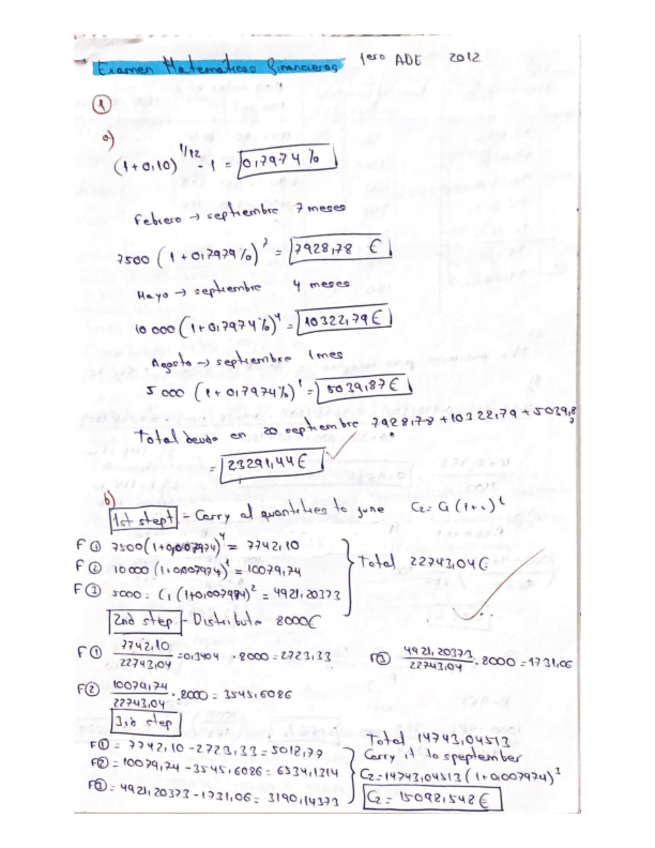 Examen Matematicas financieras 1ero ADE 2012
1
a)
(1+0,10)^1/12 - 1 = 0,7974%
Febrero → septiembre 7 meses
7500 (1+0,7979%)^7 = 7928,78 €
Mayo → septiembre 4 meses
10 000 (1+0,7974%)^4 = 10322,79 €
Agosto → septiembre 1 mes
5 000 (1+0,7974%)^1 = 5039,87 €
Total deuda en 20 septiembre 7928,78 + 10322,79 + 5039,8
= 23291,44 €
b)
1st stept - Carry al quantities to june C2 = C1 (1+i)^t
F① 7500 (1+0,007974)^4 = 7742,10
F② 10000 (1+0,007974)^1 = 10079,74
F③ 5000 = C1 (1+0,007974)^2 = 4921,20373
Total 22743,04 €
2nd step - Distribute 8000€
F① 7742,10 / 22743,04 = 0,3404 · 8000 = 2723,33
F③ 4921,20373 / 22743,04 · 8000 = 1731,06
F② 10079,74 / 22743,04 · 8000 = 3545,6086
3rd step
F① = 7742,10 - 2723,33 = 5018,79
F② = 10079,74 - 3545,6086 = 6534,1314
F③ = 4921,20373 - 1731,06 = 3190,14373
Total 14743,04513
Carry it to speptember
C2 = 14743,04513 (1+0,007974)^3
C2 = 15098,548 €